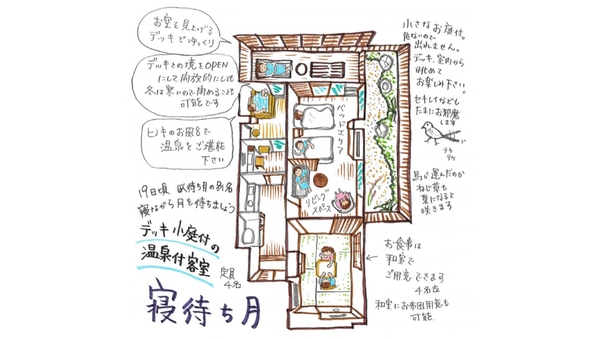 お空を見上げる
デッキでゆっくり
デッキとの境をOPEN
にして開放的にしても
冬は寒いので閉めることも
可能です
ヒノキのお風呂で
温泉をご堪能
下さい
19日頃 の月 待ち月の別名
寝ながら月を待ちましょう
デッキ小庭付の
温泉付客室
定員
4名
寝待ち月
ベッドエリア
リビング
スペース
小さなお庭付。
危ないので
出れません。
デッキ、室内から
眺めて
お楽しみ下さい。
セキレイなども
たまにお邪魔
します
鳥が運んだのか
ねじ草も
夏になると
咲きます
お食事は
和室で
ご用意できます
4名迄
和室にお布団用意も
可能